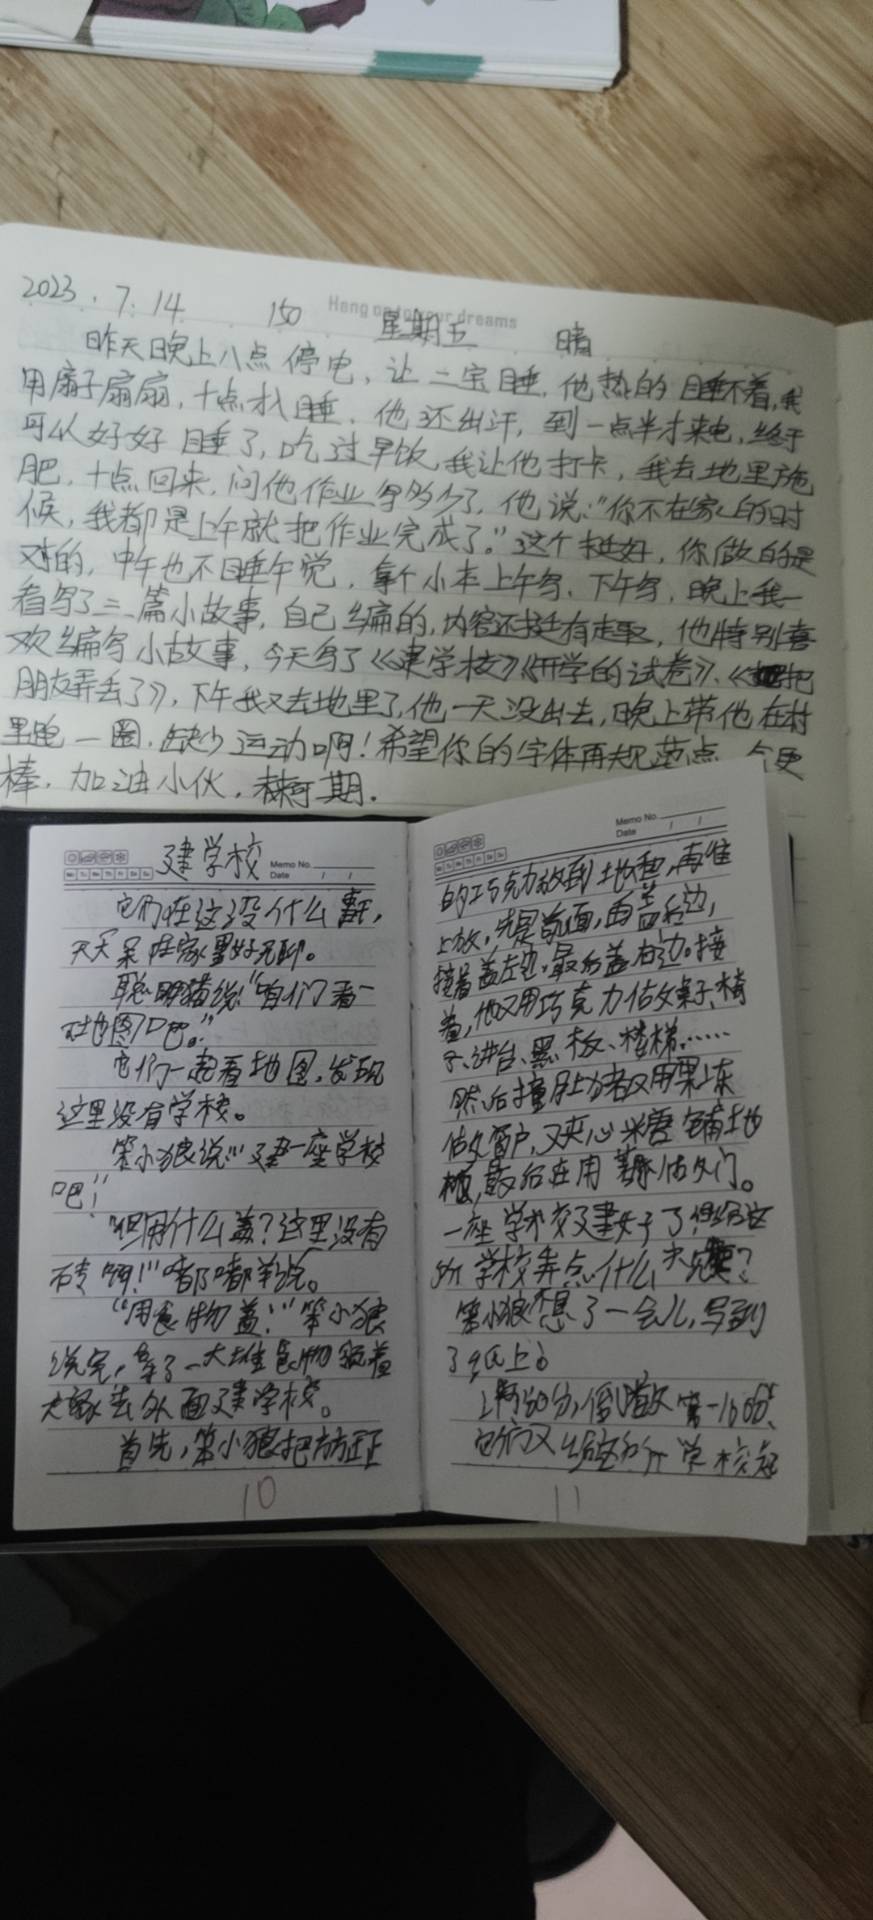 2023.7.14 150 星期五 晴
Hang on to your dreams
昨天晚上八点停电，让二宝睡，他热的睡不着，我
用扇子扇扇，十点才睡，他还出汗，到一点半才来电，终于
可以好好睡了，吃过早饭，我让他打卡，我去地里施
肥，十点回来，问他作业写多少了，他说："你不在家的时
候，我都是上午就把作业完成了。"这个挺好，你做的是
对的，中午也不睡午觉，拿个小本上午写、下午写，晚上我一
看写了三篇小故事，自己编的，内容还挺有趣，他特别喜
欢编写小故事，今天写了《建学校》《开学的试卷》、《把
朋友弄丢了》，下午我又去地里了，他一天没出去，晚上带他在村
里跑一圈，缺少运动啊！希望你的字体再规范点，会更
棒，加油小伙，未来可期.
建学校
Memo No.
Date / /
它们在这没什么事干，
天天呆在家里好无聊。
聪明猫说："咱们看一
下地图吧。"
它们一起看地图，发现
这里没有学校。
笨小狼说："建一座学校
吧！"
"但用什么盖？这里没有
砖啊！"嘟嘟羊说。
"用食物盖！"笨小狼
说完，拿了一大堆食物领着
大家去外面建学校。
首先，笨小狼把方方正正
10
Memo No.
Date / /
的巧克力放到地里，再往
上放，先是前面，再盖后边，
接着盖左边，最后盖右边。接
着，他又用巧克力做桌子、椅
子、讲台、黑板、楼梯……
然后 猪又用果冻
做窗户，又夹心米唐铺地
板，最后在用 做门。
一座学校建好了，但给这
所学校弄点什么 呢？
笨小狼想了一会儿，写到
了纸上。
分，倒数第一100分，
它们又给这所学校起
11